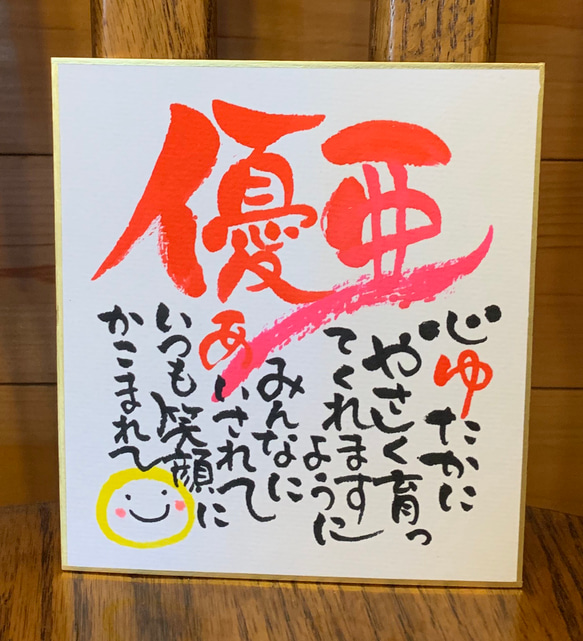 優亜
心ゆたかに
やさしく育っ
てくれます
ように
みんなに
あいされて
いつも笑顔に
かこまれて